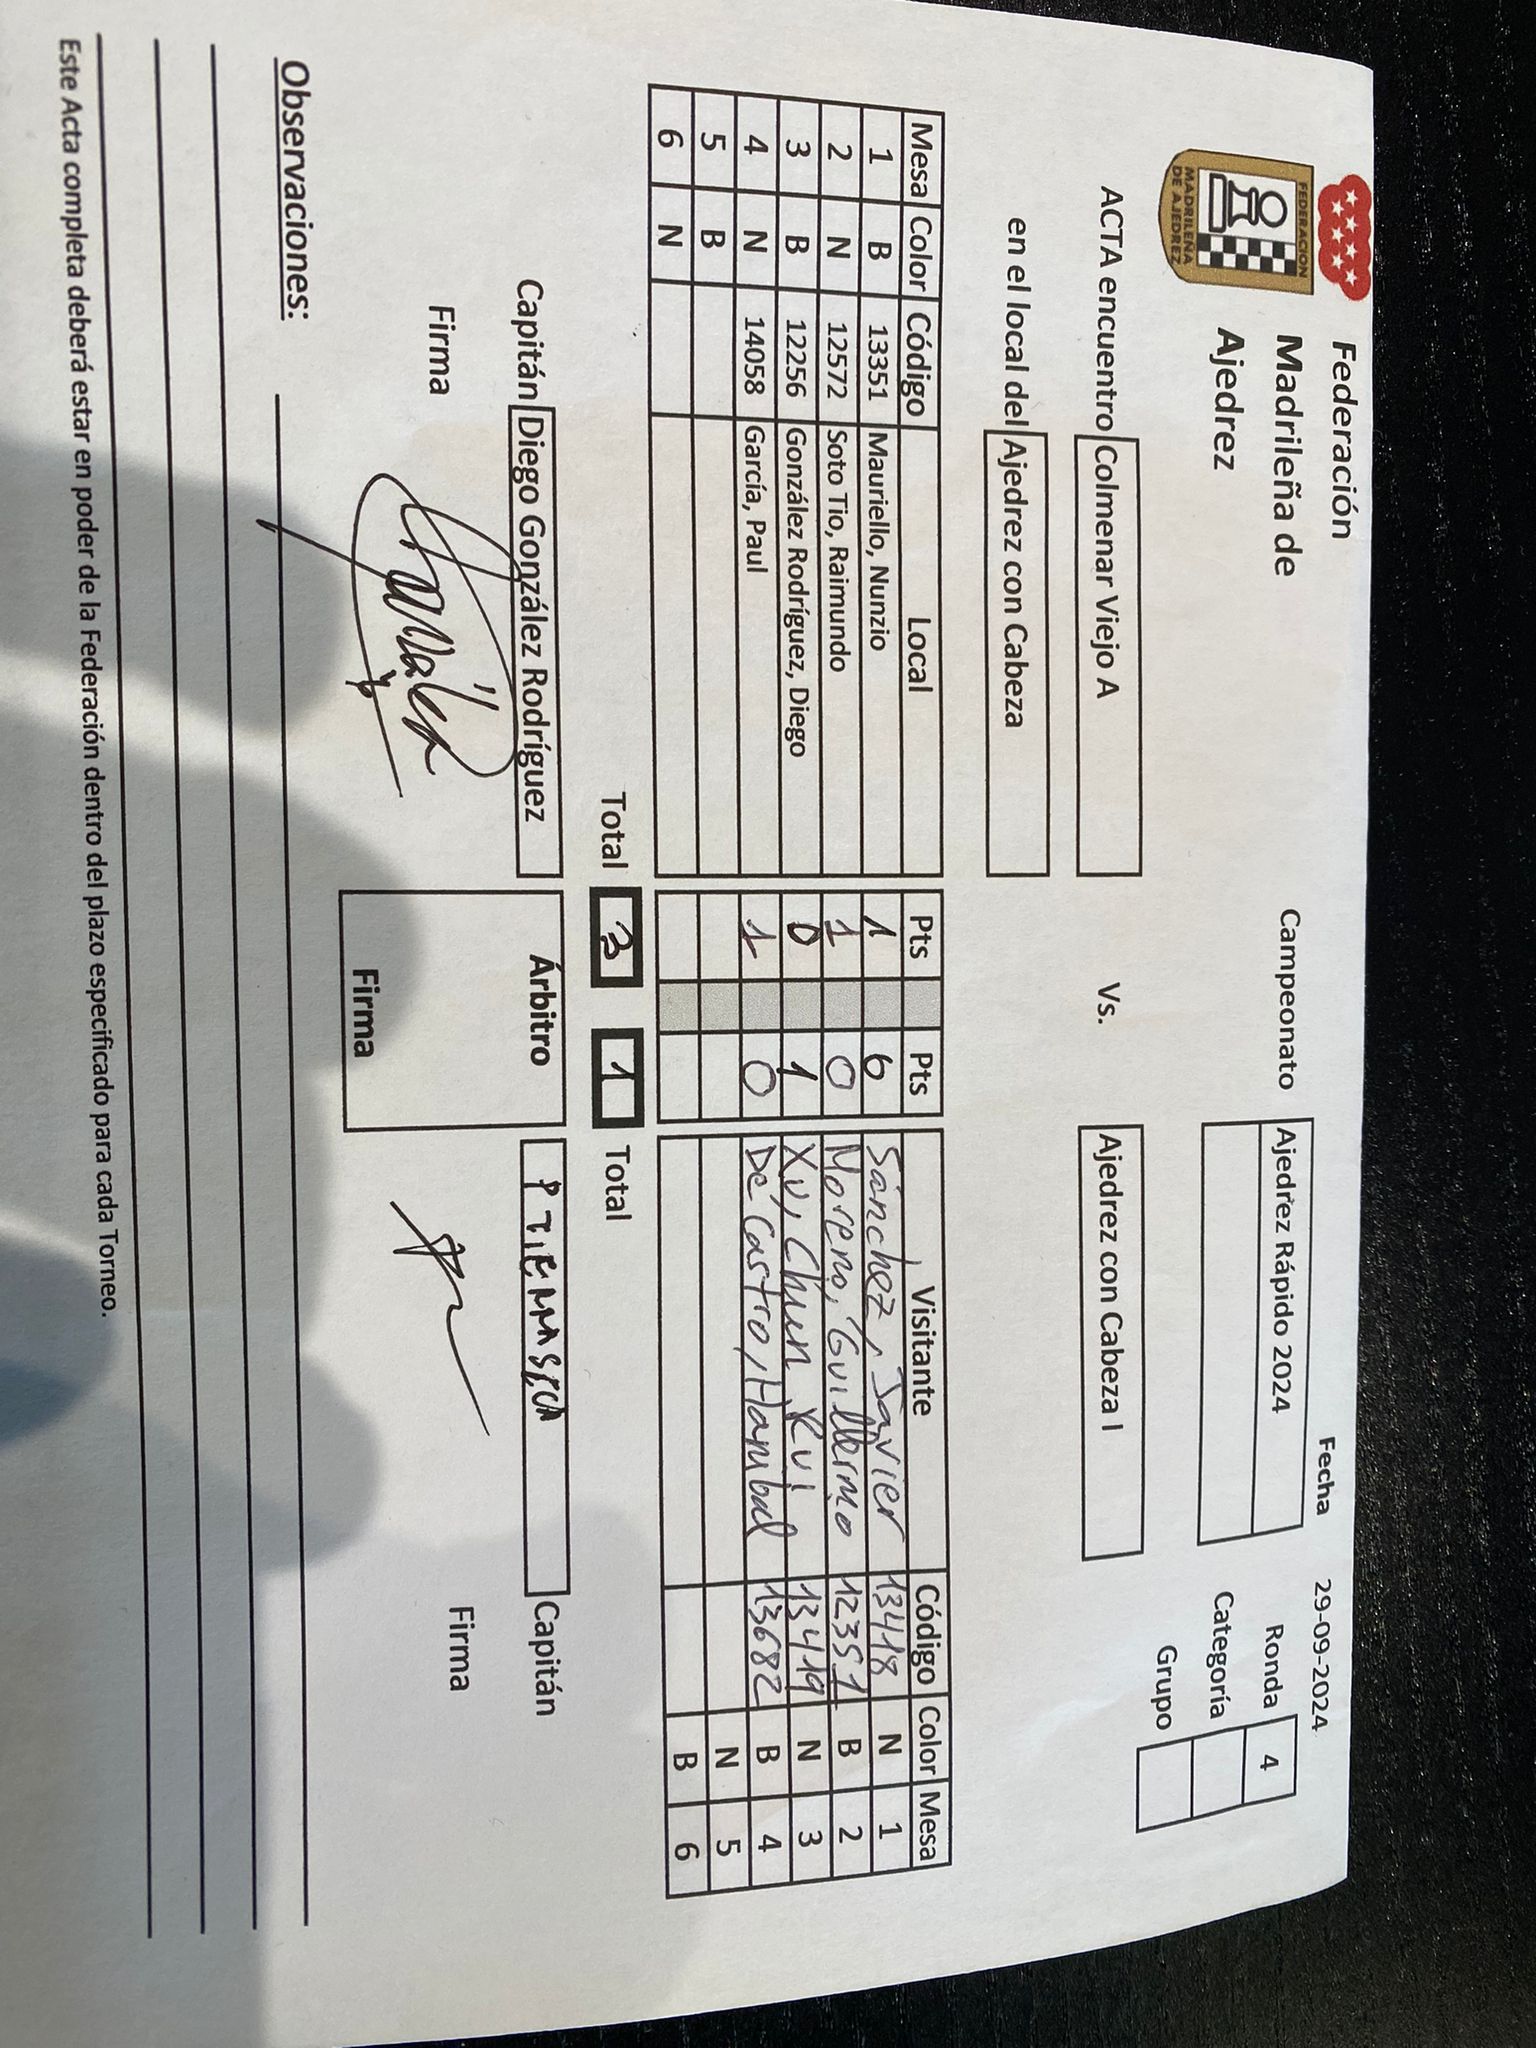 Federación
Madrileña de
Ajedrez
FEDERACION
MADRILEÑA
DE AJEDREZ
Fecha 29-09-2024
Campeonato Ajedrez Rápido 2024
Ronda 4
Categoría
Grupo
ACTA encuentro Colmenar Viejo A Vs. Ajedrez con Cabeza I
en el local del Ajedrez con Cabeza
Mesa Color Código Local Pts Pts Visitante Código Color Mesa
1 B 13351 Mauriello, Nunzio 1 0 Sánchez, Javier 13418 N 1
2 N 12572 Soto Tio, Raimundo 1 0 Moreno, Guillermo 12351 B 2
3 B 12256 González Rodríguez, Diego 0 1 Xu, Chun Rui 13419 N 3
4 N 14058 García, Paul 1 0 De Castro, Hanibal 13682 B 4
5 B N 5
6 N B 6
Total 3 1 Total
Capitán Diego González Rodríguez Árbitro P TIERRASECA Capitán
Firma González Firma
Firma
Observaciones:
Este Acta completa deberá estar en poder de la Federación dentro del plazo especificado para cada Torneo.